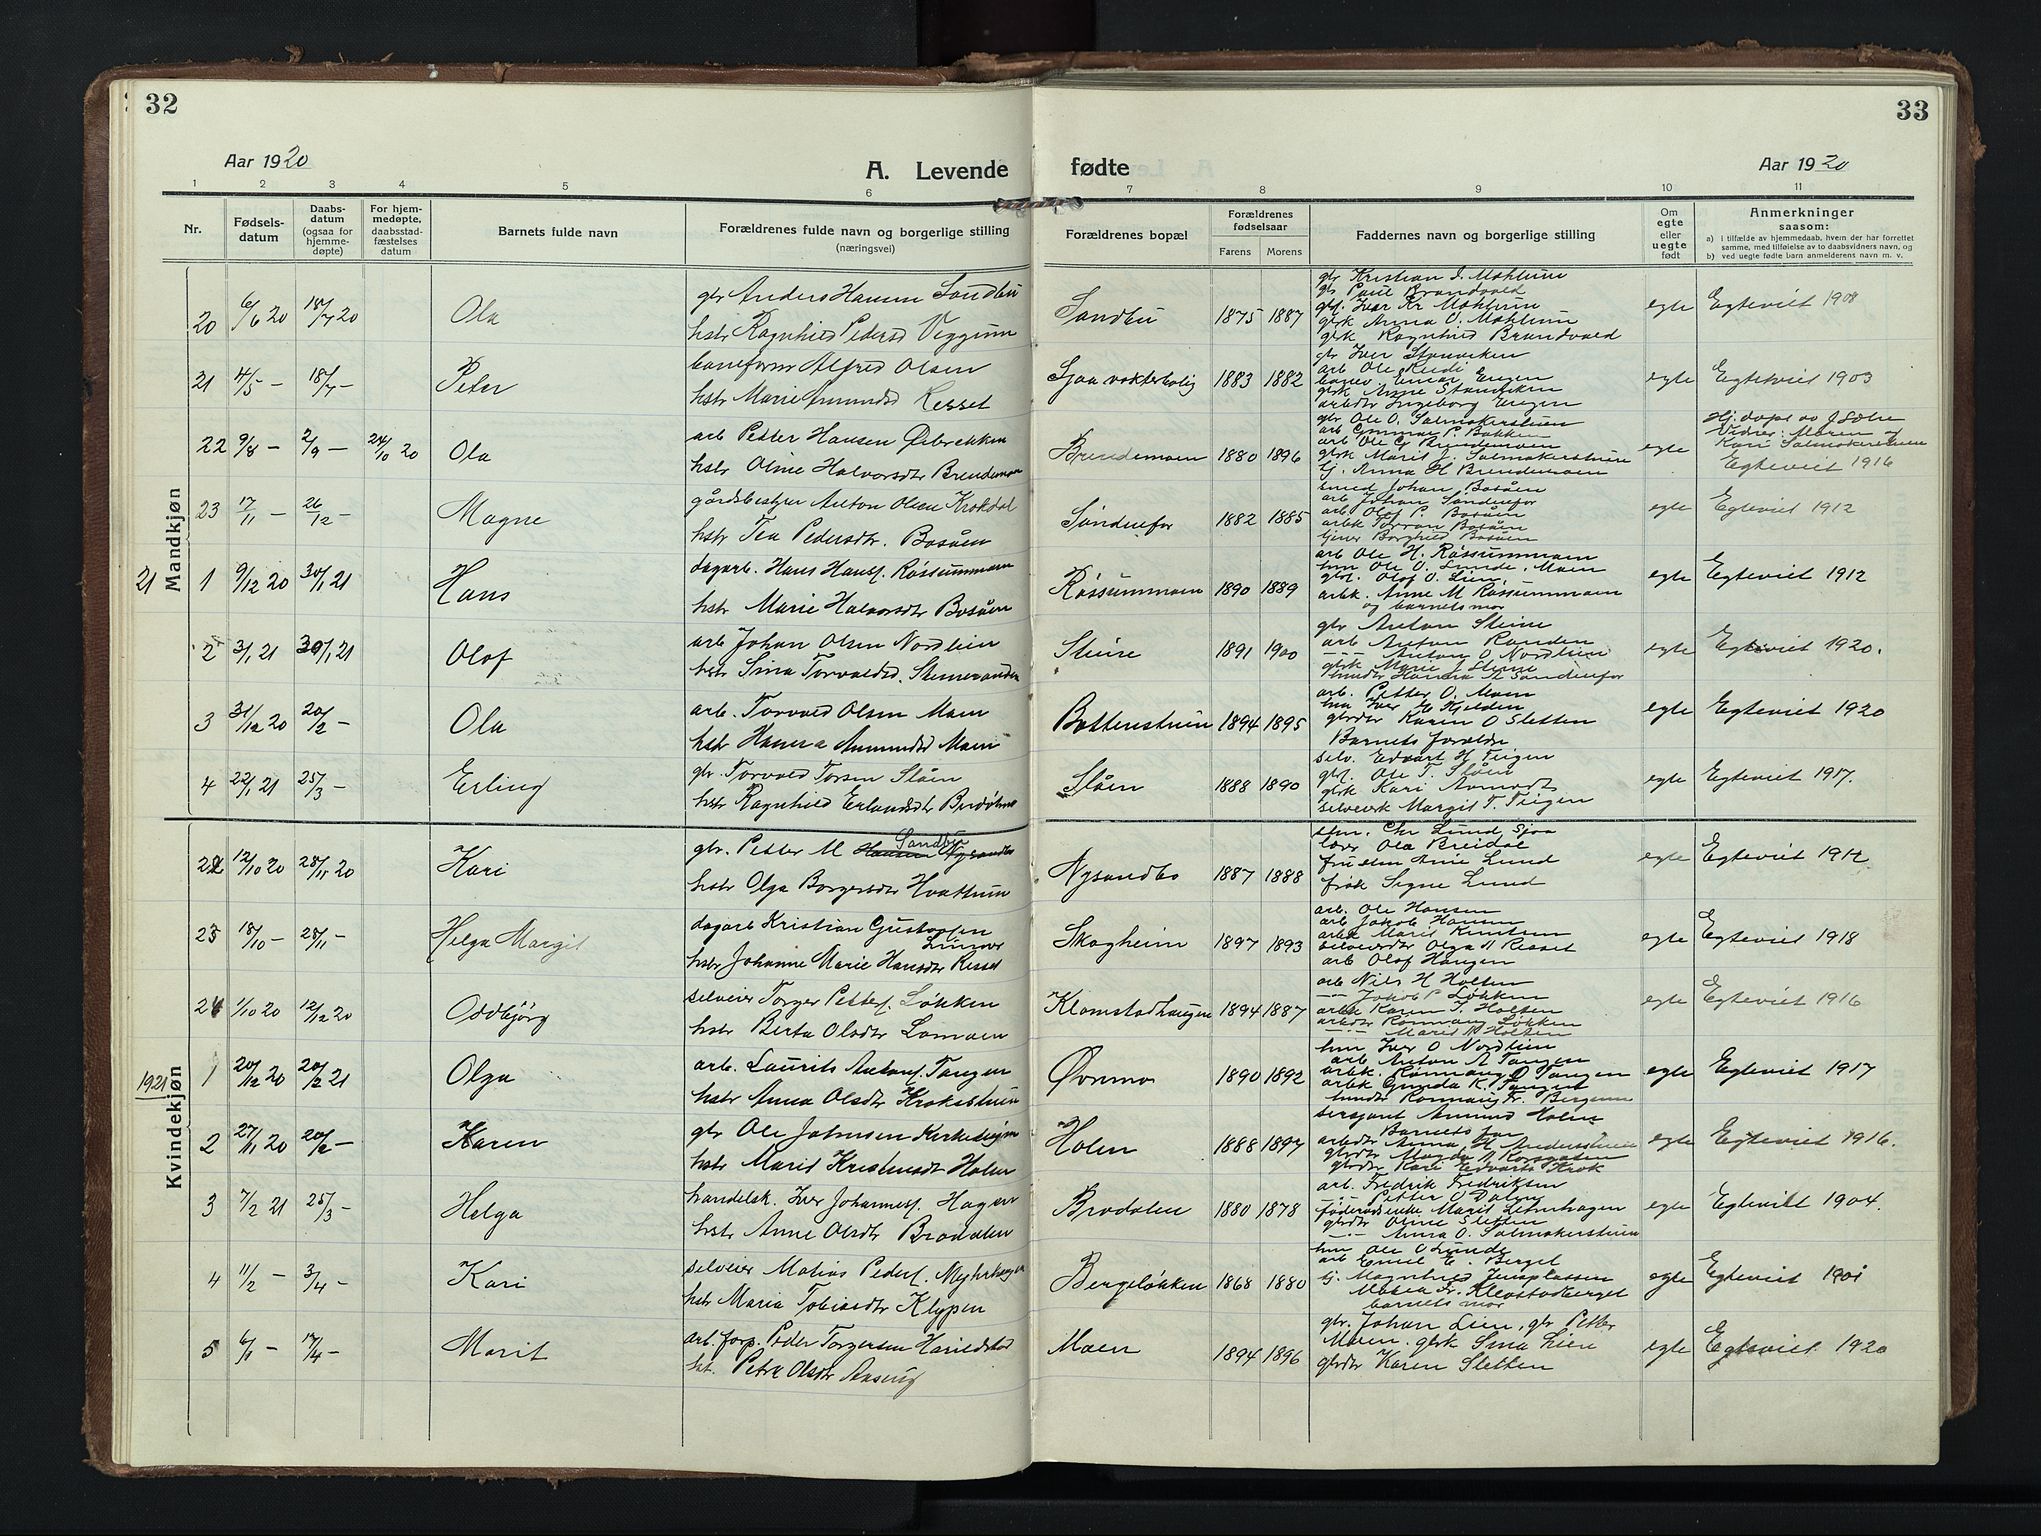 32
33
Aar 1920
A. Levende
fødte
Aar 1920
1 2 3 4 5 6 7 8 9 10 11
Nr.
Fødsels-datum
Daabs-datum (ogsaa for hjemme-døpte)
For hjem-medøpte, daabsstad-fæstelses datum
Barnets fulde navn
Forældrenes fulde navn og borgerlige stilling (næringsvei)
Forældrenes bopæl
Forældrenes fødselsaar
Farens Morens
Faddernes navn og borgerlige stilling
Om egte eller uegte født
Anmerkninger saasom:
a) i tilfælde av hjemmedaab, hvem der har forrettet samme, med tilføielse av to daabsvidners navn, og
b) ved uegte fødte barn anmelderens navn m. v.
Mandkjøn
20 6/6 20 18/7 20 Ola
gbr Anders Hansen Sandbu
hstr Ragnhild Pedersd Veggum
Sandbu 1875 1887
gbr Paul Brandvold
gbrk Anna O. Mæhlum
gbrk Ragnhild Brandvold
egte Egteviet 1908
21 4/5 - 18/7 - Peter
baneform Alfred Olsen
hstr Marie Amundsd Resset
Sjoa vokterbolig 1883 1882
gbr Iver Stamviken
egte Egteviet 1903
22 9/8 - 2/9 - 24/10 20 Ola
arb Petter Hansen Øibrekken
hstr Oline Halvorsdtr Brendemoen
Brendemoen 1880 1896
gbr Ole O. Salmakerstuen
arb Ole C. Brendemoen
gbrk Marit J. Salmakerstuen
tj. Anna H Brendemoen
egte
Egteviet 1916
23 17/11 - 26/12 - Magne
gårdsbestyrer Anton Olsen Krokdal
hstr Tea Pedersdtr. Bosåen
Søndenfor 1882 1885
smed Johan Bosåen
arb Johan Søndenfor
arb Olof P. Bosåen
egte Egteviet 1912
21 1 9/12 20 30/1 21 Hans
dagarb. Hans Hansf. Røssummoen
hstr Marie Halvorsdtr Bosåen
Røssummoen 1890 1889
arb Ole H. Røssummoen
gbr. Olof O. Lien.
arbk. Anne M Røssummoen
og barnets mor
egte Egteviet 1912
2 3/1 21 30/1 21 Olof
arb Johan Olsen Nordlien
hstr Sina Torvaldsd. Steineranden
Steine 1891 1900
gbr Anton Steine
arb Anton Randen
---- Anton O Nordlien
gbrk Marie J Steine
egte Egteviet 1920.
3 31/12 20 20/2 - Ola
arb. Torvald Olsen Moen
hstr Hanna Amundsd Moen
Bottenstuen 1894 1895
arb. Petter O. Moen
hm Iver H Kjelden
gbrdtr Karen O Sletten
Barnets forældre
egte Egteviet 1920
4 22/1 21 25/3 - Erling
gbr. Torvald Torsen Slåen
hstr Ragnhild Erlandsdtr
Slåen 1888 1890
selv. Edvart H Teigen
gbr. Ole T. Slåen
gbrk Kari
selveierk Margit T. Teigen
egte Egteviet 1917.
Kvindekjøn
22 12/10 20 28/11 20 Kari
Sandbu
gbr. Petter M Hansen Nysandbo
hstr Olga Borgersdtr Hvattum
Nysandbo 1887 1888
stm. Chr Lund, Sjoa
lærer Ola Breidal
fru stm Anie Lund
frøk Signe Lund
egte Egteviet 1912
23 18/10 - 28/11 - Helga Margit
dagarb Kristian Gustavsen
hstr Johanne Marie Hansdtr Resset
Skogheim 1897 1893
arb. Ole Hansen
arb Jakob Hansen
arbk Marit Knutsen
selveierdtr Olga A Resset
arb Olof Haugen
egte Egteviet 1918
24 1/10 20 12/12 20 Oddbjörg
selveier Torger Petterf. Løkken
hstr Berta Olsdtr Lomoen
Klomstadhaugen 1894 1887
arb Nils H Holten
---- Jakob P Løkken
arbk Karen J. Holten
arbdtr Rønnaug Løkken
---- Marit N Holten
egte Egteviet 1916
1921 1 20/12 20 20/2 21 Olga
arb. Laurits Antonf. Tangen
hstr Anna Olsdtr Krokestuen
Øvrmo 1890 1892
hm Iver O Nordlien
arb. Anton A Tangen
arbk. Rønnaug O Tangen
arbk Gunda K. Tangen
egte Egteviet 1917
2 27/11 20 20/2 - Karen
gbr Ole Johnsen Kirkestugen
hstr Marit Kristensdt Holen
Holen 1888 1897
sersjant Amund Holen
Barnets far
arbdtr Anna H Andersstuen
gbrdtr Kari Edvarts Krok
egte Egteviet 1916.
3 7/2 21 25/3 - Helga
handelsk. Iver Johannesf. Hagen
hstr Anne Olsdtr Brandlien
Brodalen 1880 1878
arb. Fredrik Fredriksen
---- Petter O Dalen
gbrdtr Oline Sletten
---- Anna O. Salmakerstuen
egte Egteviet 1904.
4 11/2 - 3/4 - Kari
selveier Matias Pederf. Myhrhaugen
hstr Maria Tobiasdtr Klypen
Bergeløkken 1868 1880
hm Ole O Lunde
arb Emil E. Berget
barnets mor
egte Egteviet 1901
5 6/1 - 17/4 - Marit
arb. forp. Peder Torgersen Harildstad
hst. Petra Olsdtr Aaseng
Moen 1894 1896
gbr. Johan Lien, gbr Petter
Moen. gbrk Sina Lien
gbrdtr Karen Sletten
egte Egteviet 1920